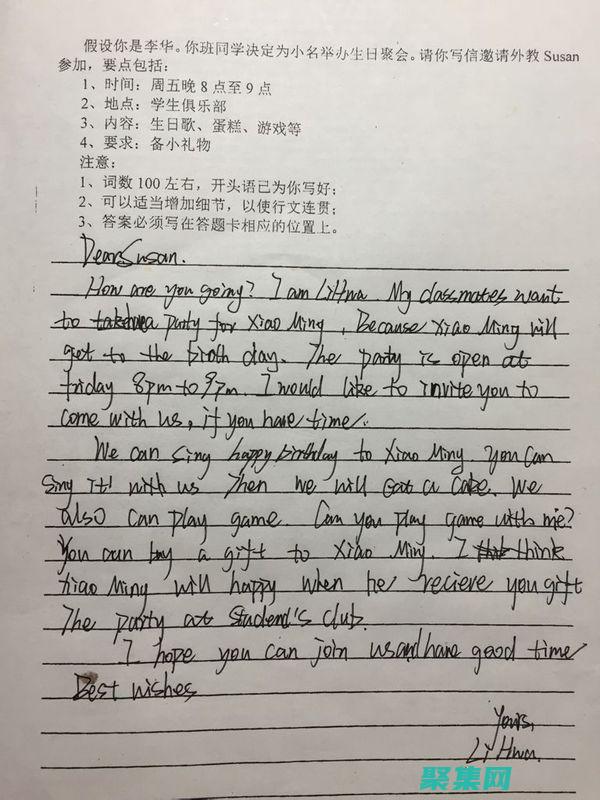 假设你是李华。你班同学决定为小名举办生日聚会。请你写信邀请外教 Susan
参加，要点包括：
1、时间：周五晚 8 点至 9 点
2、地点：学生俱乐部
3、内容：生日歌、蛋糕、游戏等
4、要求：备小礼物
注意：
1、词数 100 左右，开头语已为你写好；
2、可以适当增加细节，以使行文连贯；
3、答案必须写在答题卡相应的位置上。
Dear Susan.
How are you going? I am LiHua. My classmates want
to a party for Xiao Ming, Because Xiao Ming will
get to the birth day. The party is open at
friday 8pm to 9pm. I would like to invite you to
come with us, if you have time.
We can sing happy birthday to Xiao Ming. You can
sing it! with us Then we will eat a cake. We
also can play game. Can you play game with me?
You can buy a gift to Xiao Ming. I think
Xiao Ming will happy when he recieve you gift
The party at Student's club.
I hope you can join us and have good time
Best wishes
Yours,
Li Hua.
聚集网